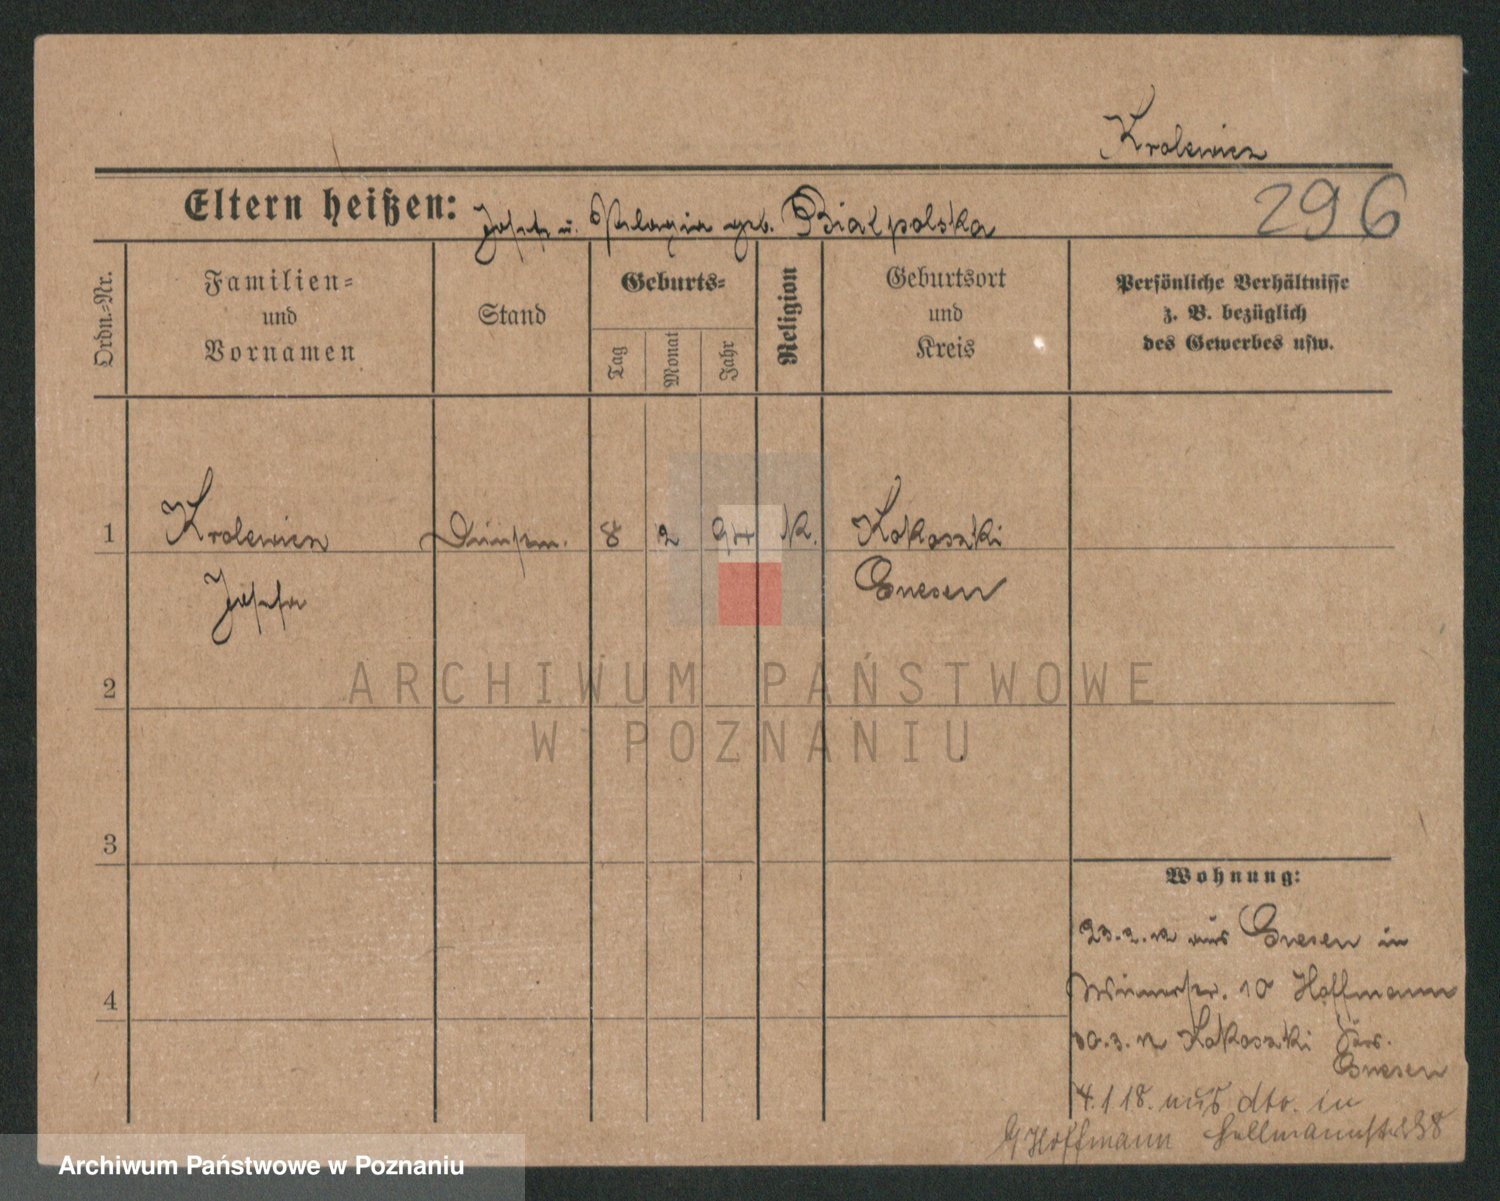 Krolewicz
296
Eltern heißen: Josef u. Pelagia geb. Bialpolska
Ordn.-Nr.
Familien-
und
Vornamen
Stand
Geburts-
Tag
Monat
Jahr
Religion
Geburtsort
und
Kreis
Persönliche Verhältnisse
z. B. bezüglich
des Gewerbes usw.
1
Krolewicz
8 2 94 K.
Kokoszki
Josefa
Gnesen
2
ARCHIWUM PAŃSTWOWE
W POZNANIU
3
Wohnung:
23.2.12 aus Gnesen in
10 Hoffmann
4
30.3.12 Kokoszki Krs.
Gnesen
4.1 18. aus dto. in
Hoffmann
Archiwum Państwowe w Poznaniu